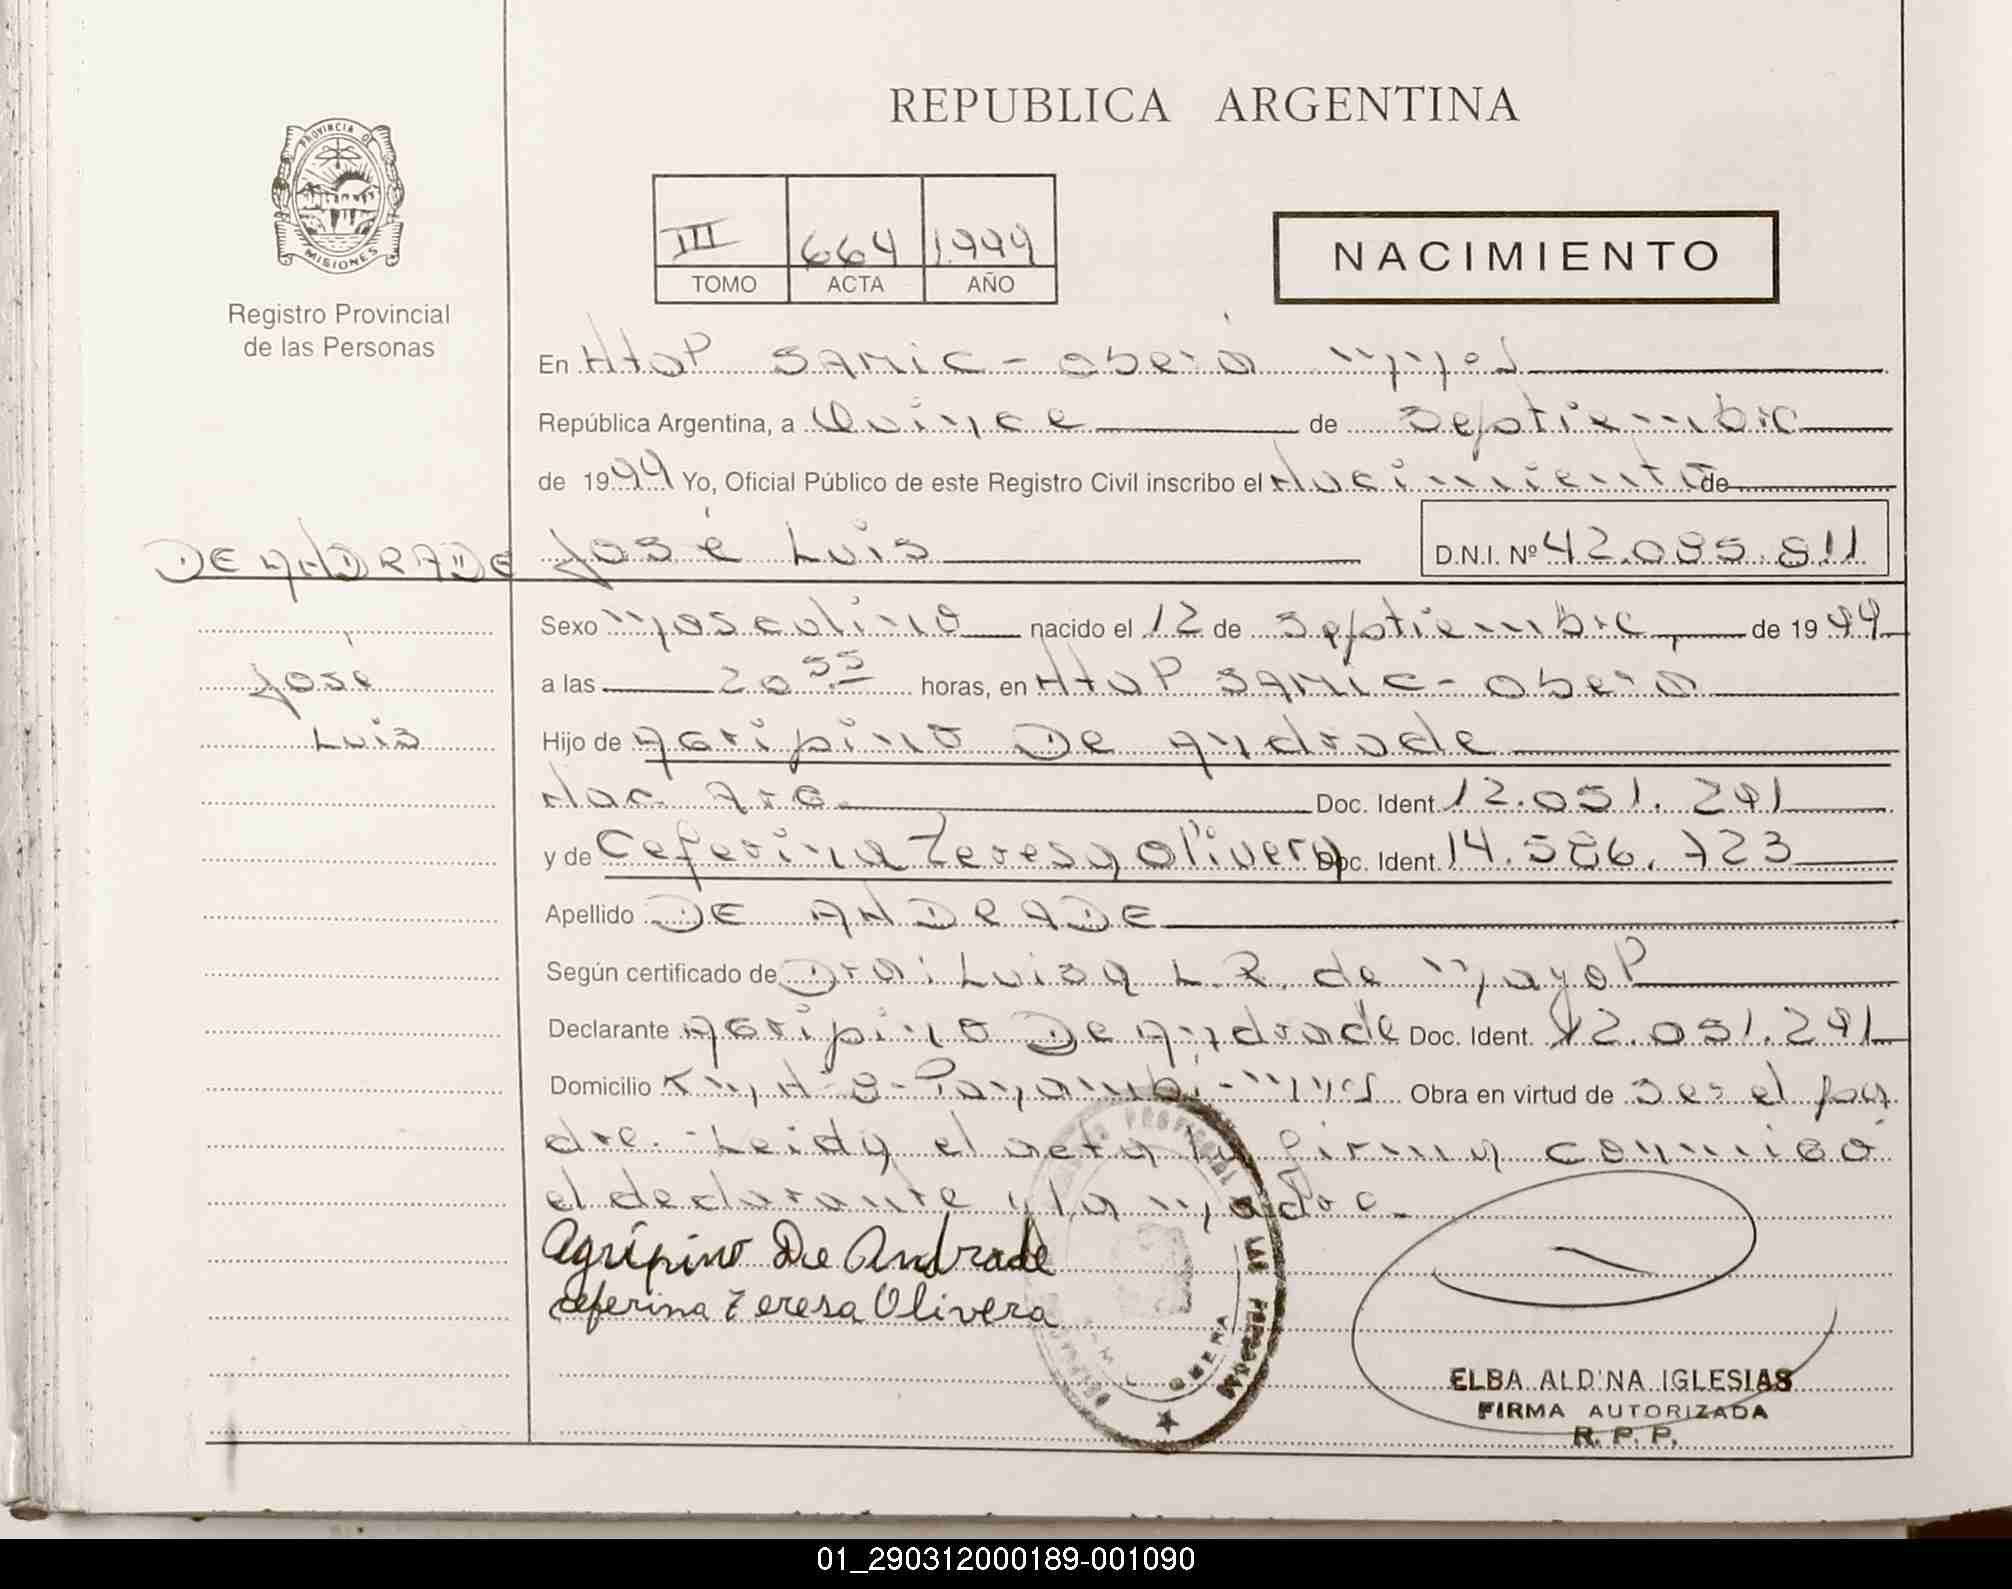 REPUBLICA ARGENTINA
PROVINCIA DE
MISIONES
Registro Provincial
de las Personas
III 664 1.999
TOMO ACTA AÑO
NACIMIENTO
En Htal SAMIC - Oberá Mnes
República Argentina, a Quince de Septiembre
de 1999 Yo, Oficial Público de este Registro Civil inscribo el Nacimiento de
DE ANDRADE José Luis D.N.I. Nº 42.085.811
Sexo Masculino nacido el 12 de Septiembre de 1999
José
a las 20 55 horas, en Htal SAMIC - Oberá
Luis
Hijo de Agripino De Andrade
Nac. Arg. Doc. Ident. 12.051.291
y de Ceferina Teresa Olivera Doc. Ident. 14.586.723
Apellido DE ANDRADE
Según certificado de Dra: Luisa L. R. de Mayol
Declarante Agripino De Andrade Doc. Ident. 12.051.291
Domicilio Km 8 - Panambi - Mnes Obra en virtud de ser el pa
dre. - Leida el acta la firma conmigo
el declarante y la Madre.
Agripino De Andrade
Ceferina Teresa Olivera
PROVINCIAL DE LAS PERSONAS
OBERA
ELBA ALDINA IGLESIAS
FIRMA AUTORIZADA
R. P. P.
01_290312000189-001090